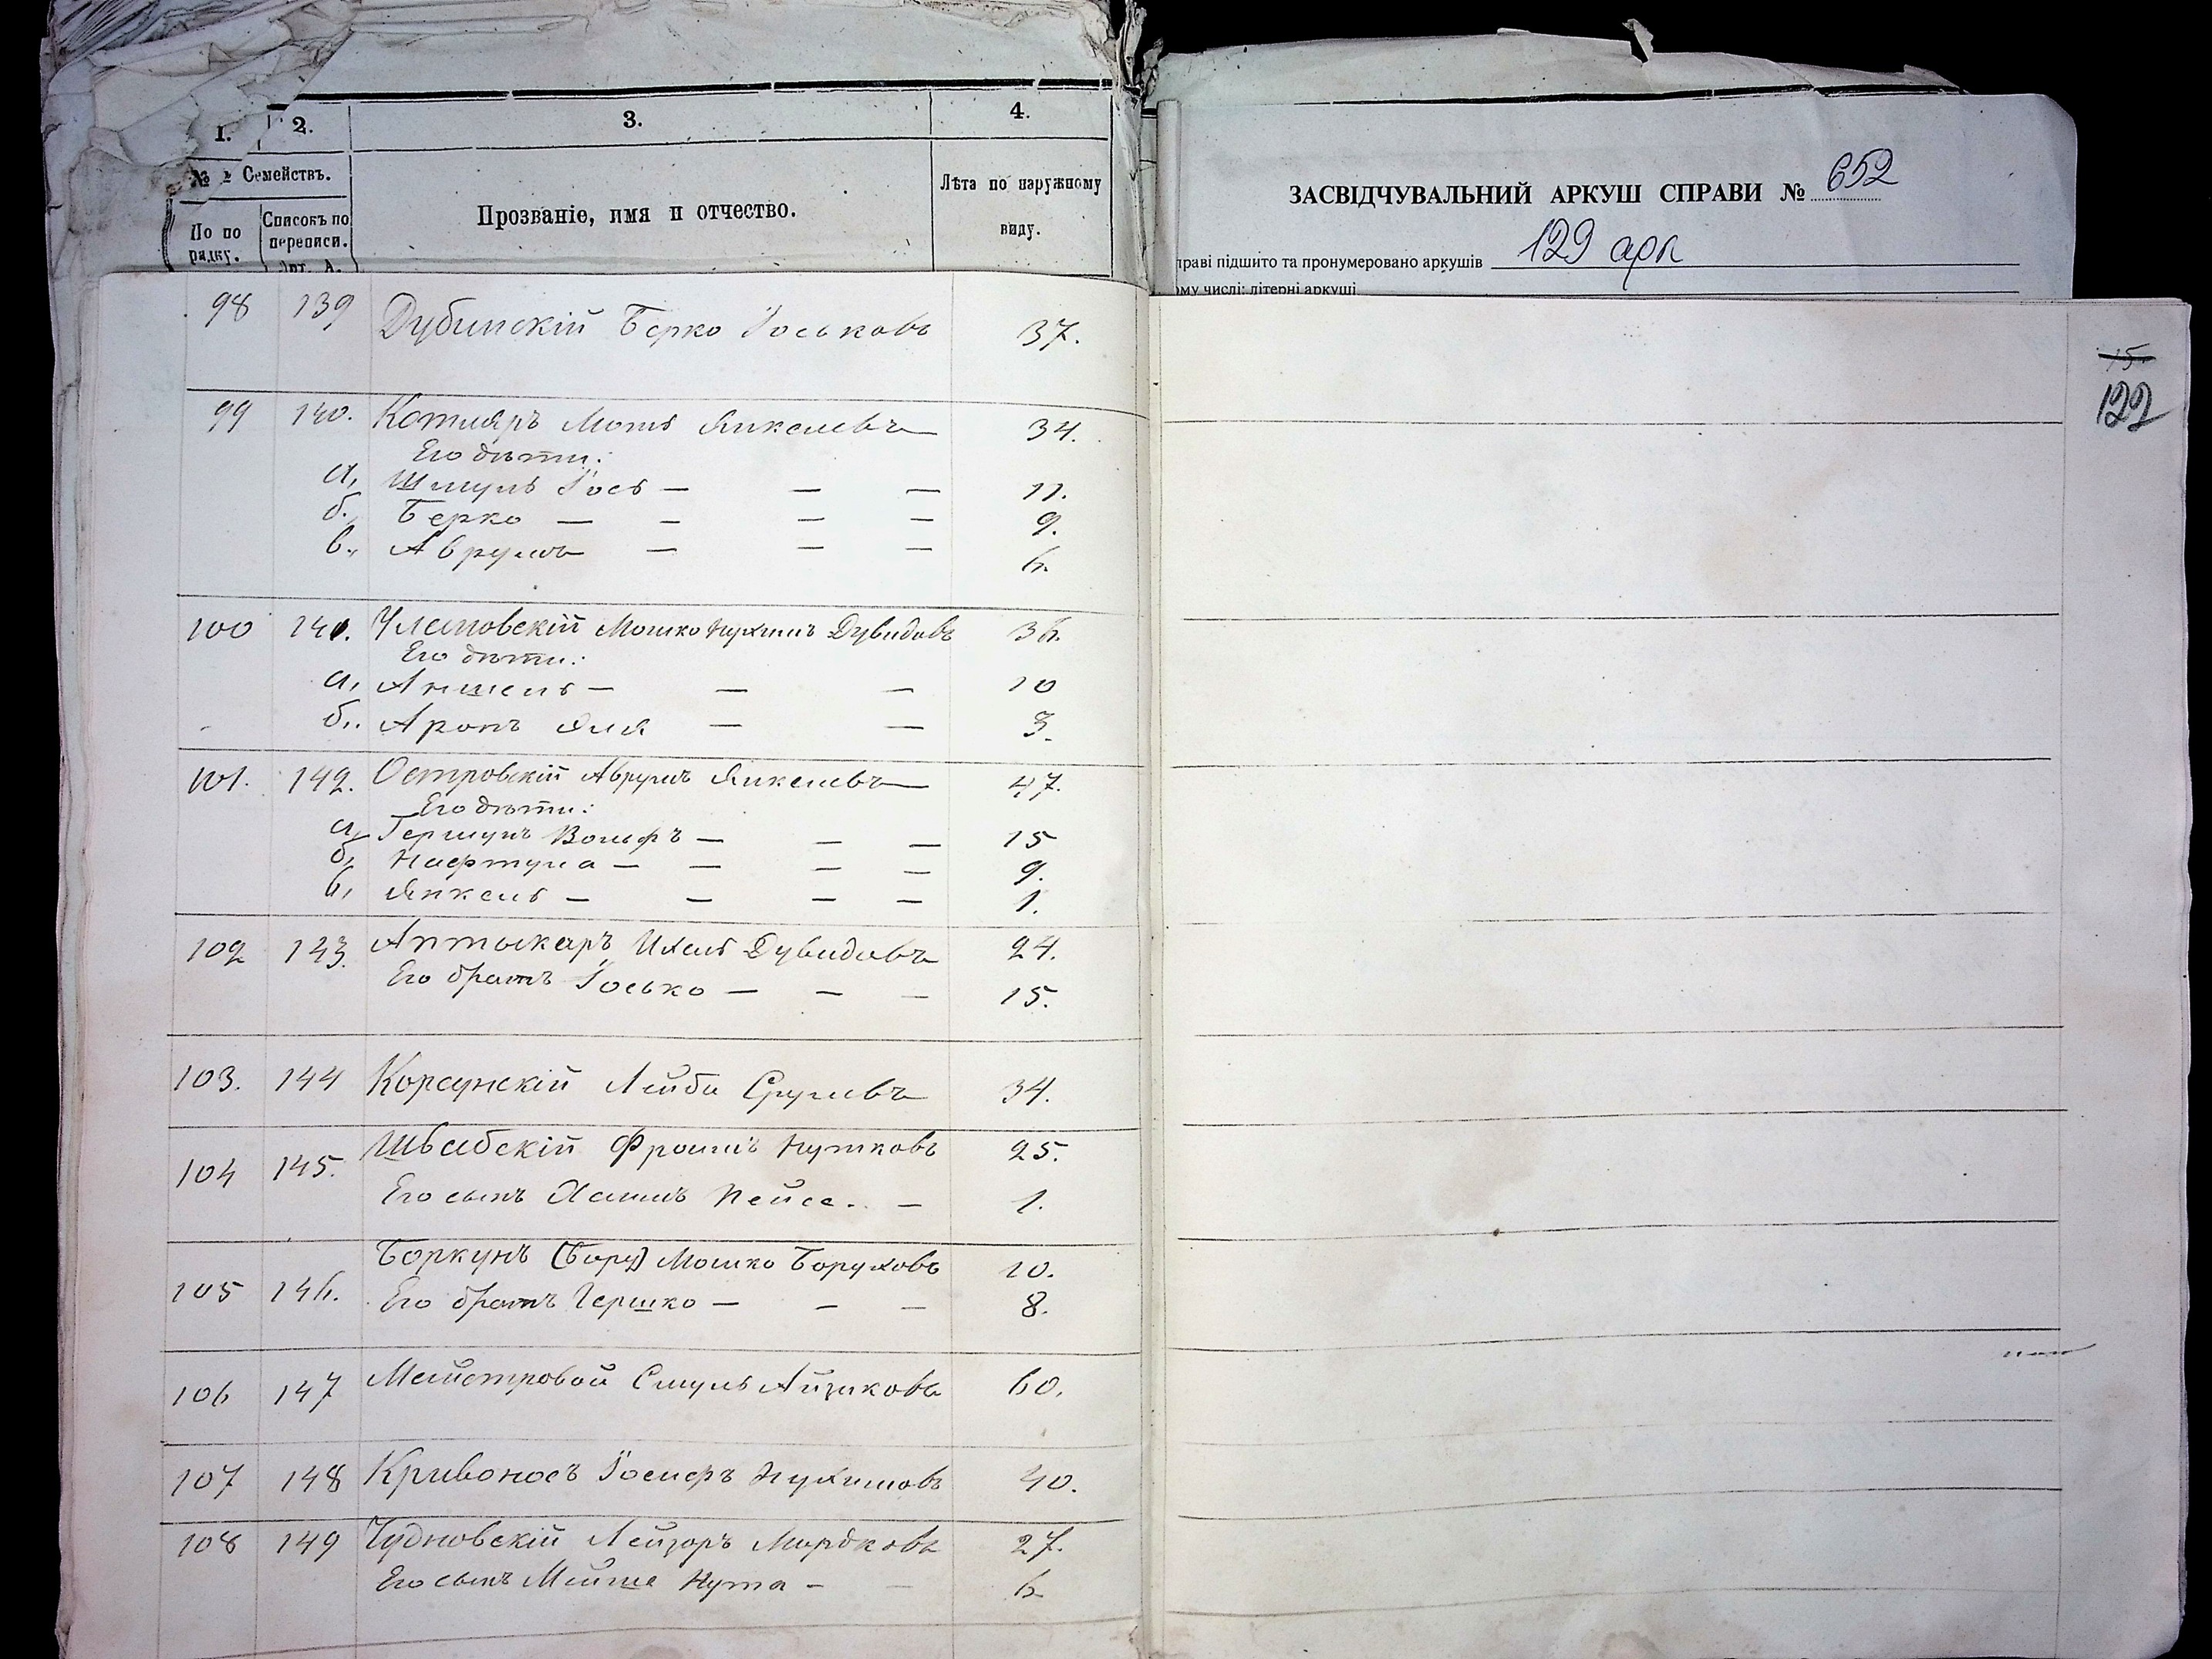 1. 2. 3. 4.
№ Семействъ. Прозваніе, имя и отчество. Лѣта по наружному виду.
По по рядку. Списокъ по переписи.
ЗАСВІДЧУВАЛЬНИЙ АРКУШ СПРАВИ № 652
праві підшито та пронумеровано аркушів 129 арк
ому числі: літерні аркуші
15.
122
98 139 Дубинскій Берко Іоськовъ 37.
99 140. Котляръ Моть Янкелевъ 34.
Его дѣти:
а, Шмуль Іось — — — 11.
б. Берко — — — — 9.
в., Аврумъ — — — 6.
100 141. Улановскій Мошко Нухимъ Дувидовъ 36.
Его дѣти:
а, Аншель — — — 10
б., Аронъ Эля — — 3.
101. 142. Островскій Аврумъ Янкелевъ 47.
Его дѣти:
а, Гершунъ Вольфъ — — — 15
б, Нафтула — — — — 9.
в, Янкель — — — — 1.
102 143. Аптыкаръ Ихель Дувидовъ 24.
Его братъ Іосько — — — 15.
103. 144 Корсунскій Лейба Срулевъ 34.
104 145. Швабскій Фроимъ Нутковъ 25.
Его сынъ Хаимъ Пейсе. — 1.
105 146. Боркунъ Мошко Боруховъ 10.
Его братъ Гершко — — — 8.
106 147 Мейстровой Смуль Айзиковъ 60.
107 148 Кривоносъ Іосифъ Нухимовъ 40.
108 149 Чудновскій Лейзоръ Мордковъ 27.
Его сынъ Мойше Нута — — 6.